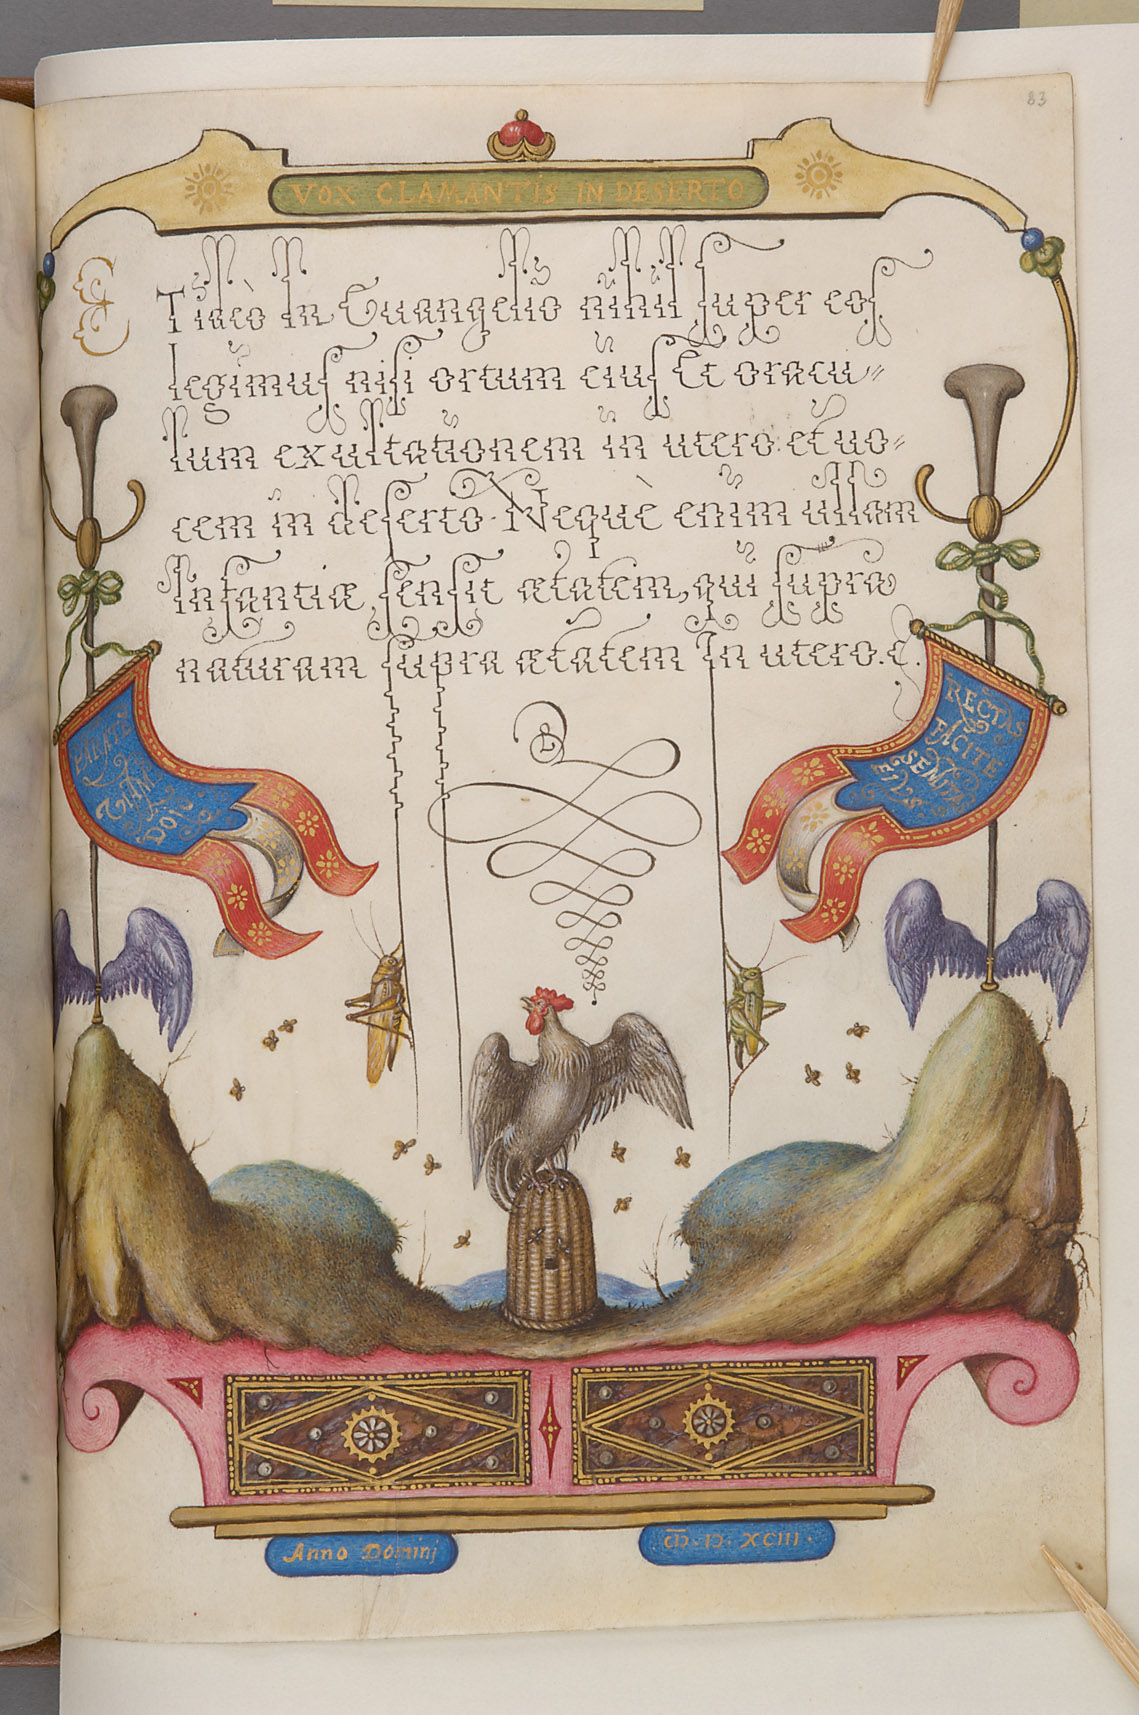 83
VOX CLAMANTIS IN DESERTO
Et ideò In Euangelio nihil super eos
legimus nisi ortum eius Et oracu=
lum exultationem in utero. et uo=
cem in deserto. Nequè enim ullam
Infantiæ, sensit ætatem, qui supra
naturam supra ætatem In utero. &.
PARATE
VIAM
DOI
RECTAS
FACITE
SEMITAS
EIUS
Anno Dominj
M. D. XCIII.